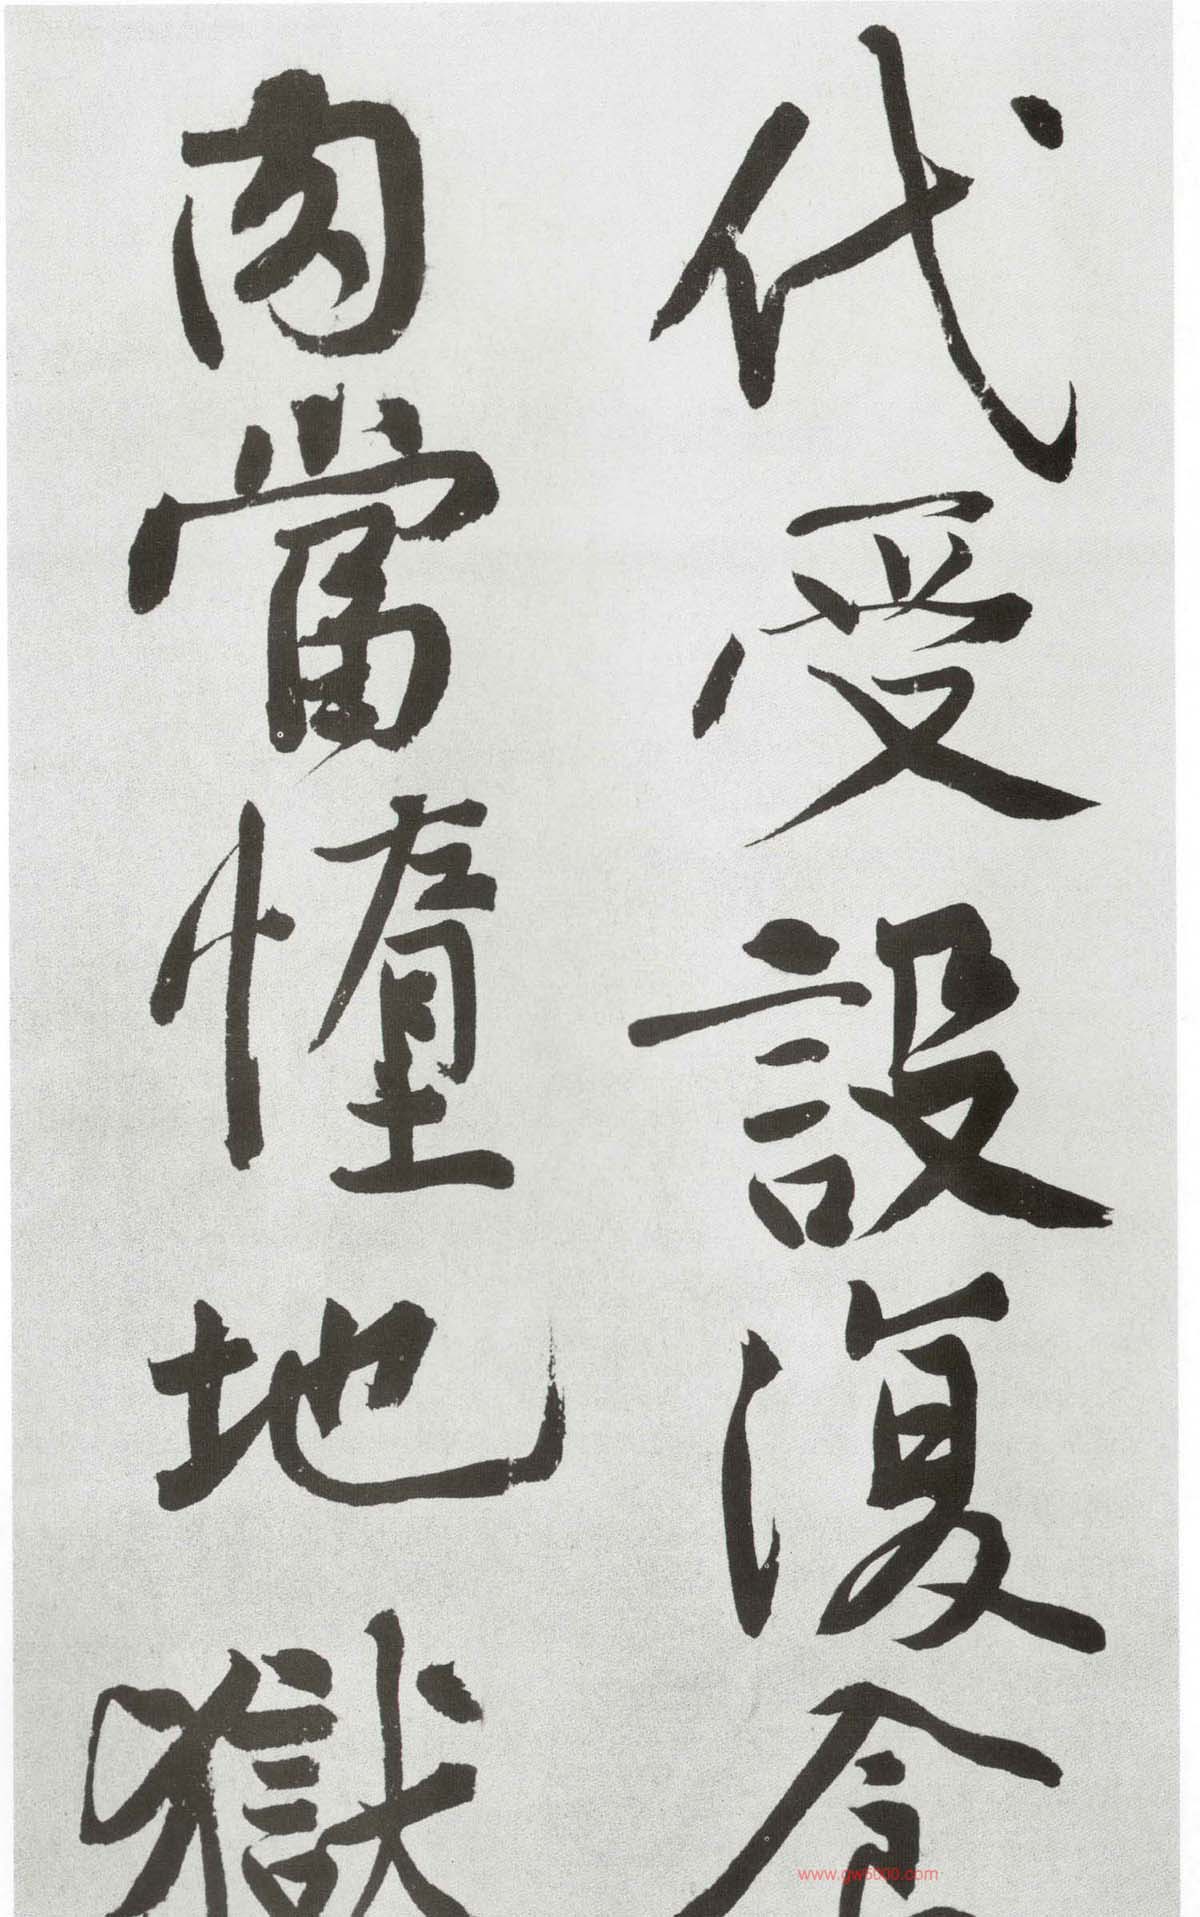 代受設復食
肉當墮地獄
www.gw5000.com